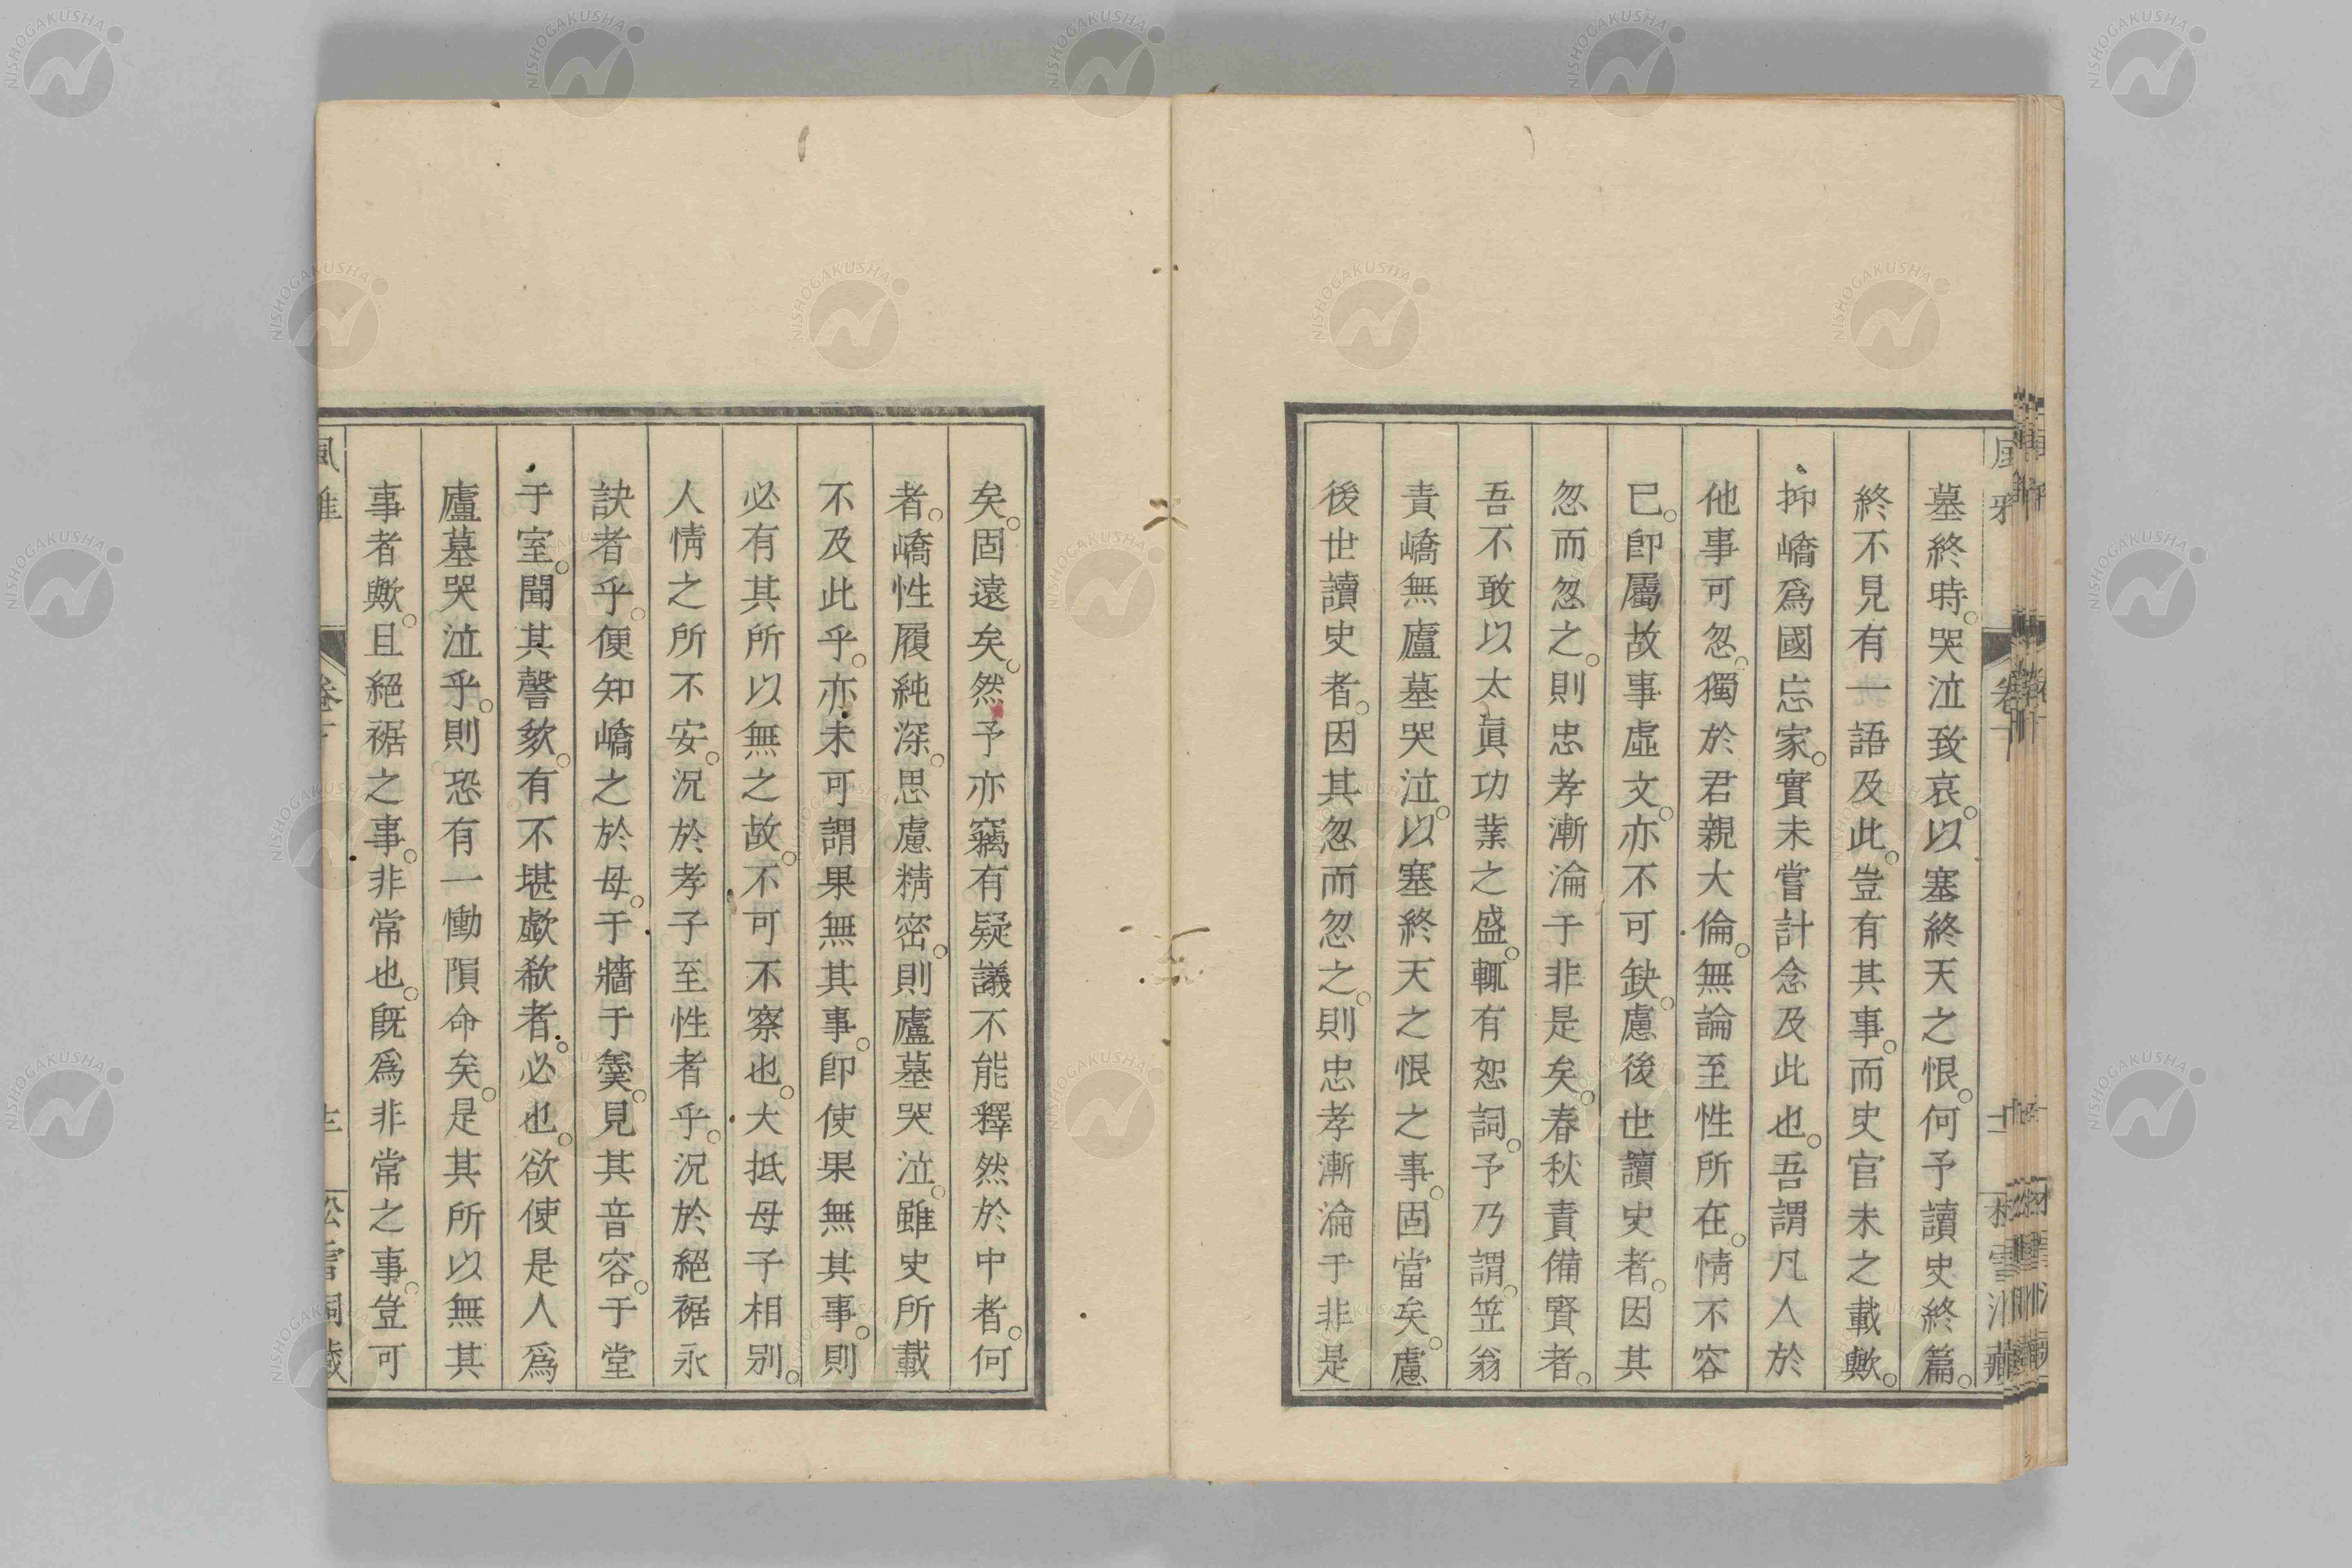 墓終時。哭泣致哀。以塞終天之恨。何予讀史終篇。
終不見有一語及此。豈有其事。而史官未之載歟。
抑嶠爲國忘家。實未嘗計念及此也。吾謂凡人於
他事可忽。獨於君親大倫。無論至性所在。情不容
已。卽屬故事虛文。亦不可缺。慮後世讀史者。因其
忽而忽之。則忠孝漸淪于非是矣。春秋責備賢者。
吾不敢以太眞功業之盛。輒有恕詞。予乃謂。笠翁
責嶠無廬墓哭泣。以塞終天之恨之事。固當矣。慮
後世讀史者。因其忽而忽之。則忠孝漸淪于非是
矣。固遠矣。然予亦竊有疑議不能釋然於中者。何
者。嶠性履純深。思慮精密。則廬墓哭泣。雖史所載
不及此乎。亦未可謂果無其事。卽使果無其事。則
必有其所以無之故。不可不察也。大抵母子相別。
人情之所不安。況於孝子至性者乎。況於絕裾永
訣者乎。便知嶠之於母。于牆于羹。見其音容。于堂
于室。聞其謦欬。有不堪歔欷者。必也。欲使是人爲
廬墓哭泣乎。則恐有一慟隕命矣。是其所以無其
事者歟。且絕裾之事。非常也。旣爲非常之事。豈可
風雅